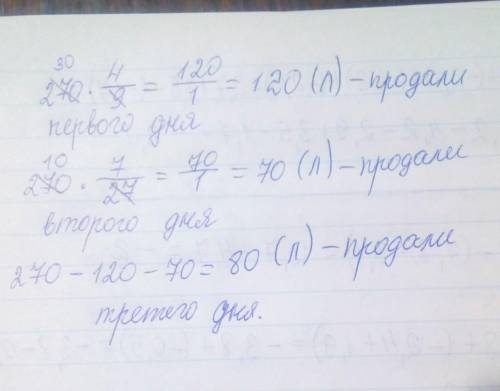 30
270 · 4/9 = 120/1 = 120 (л) – продали
первого дня
10
270 · 7/27 = 70/1 = 70 (л) – продали
второго дня
270 – 120 – 70 = 80 (л) – продали
третего дня.